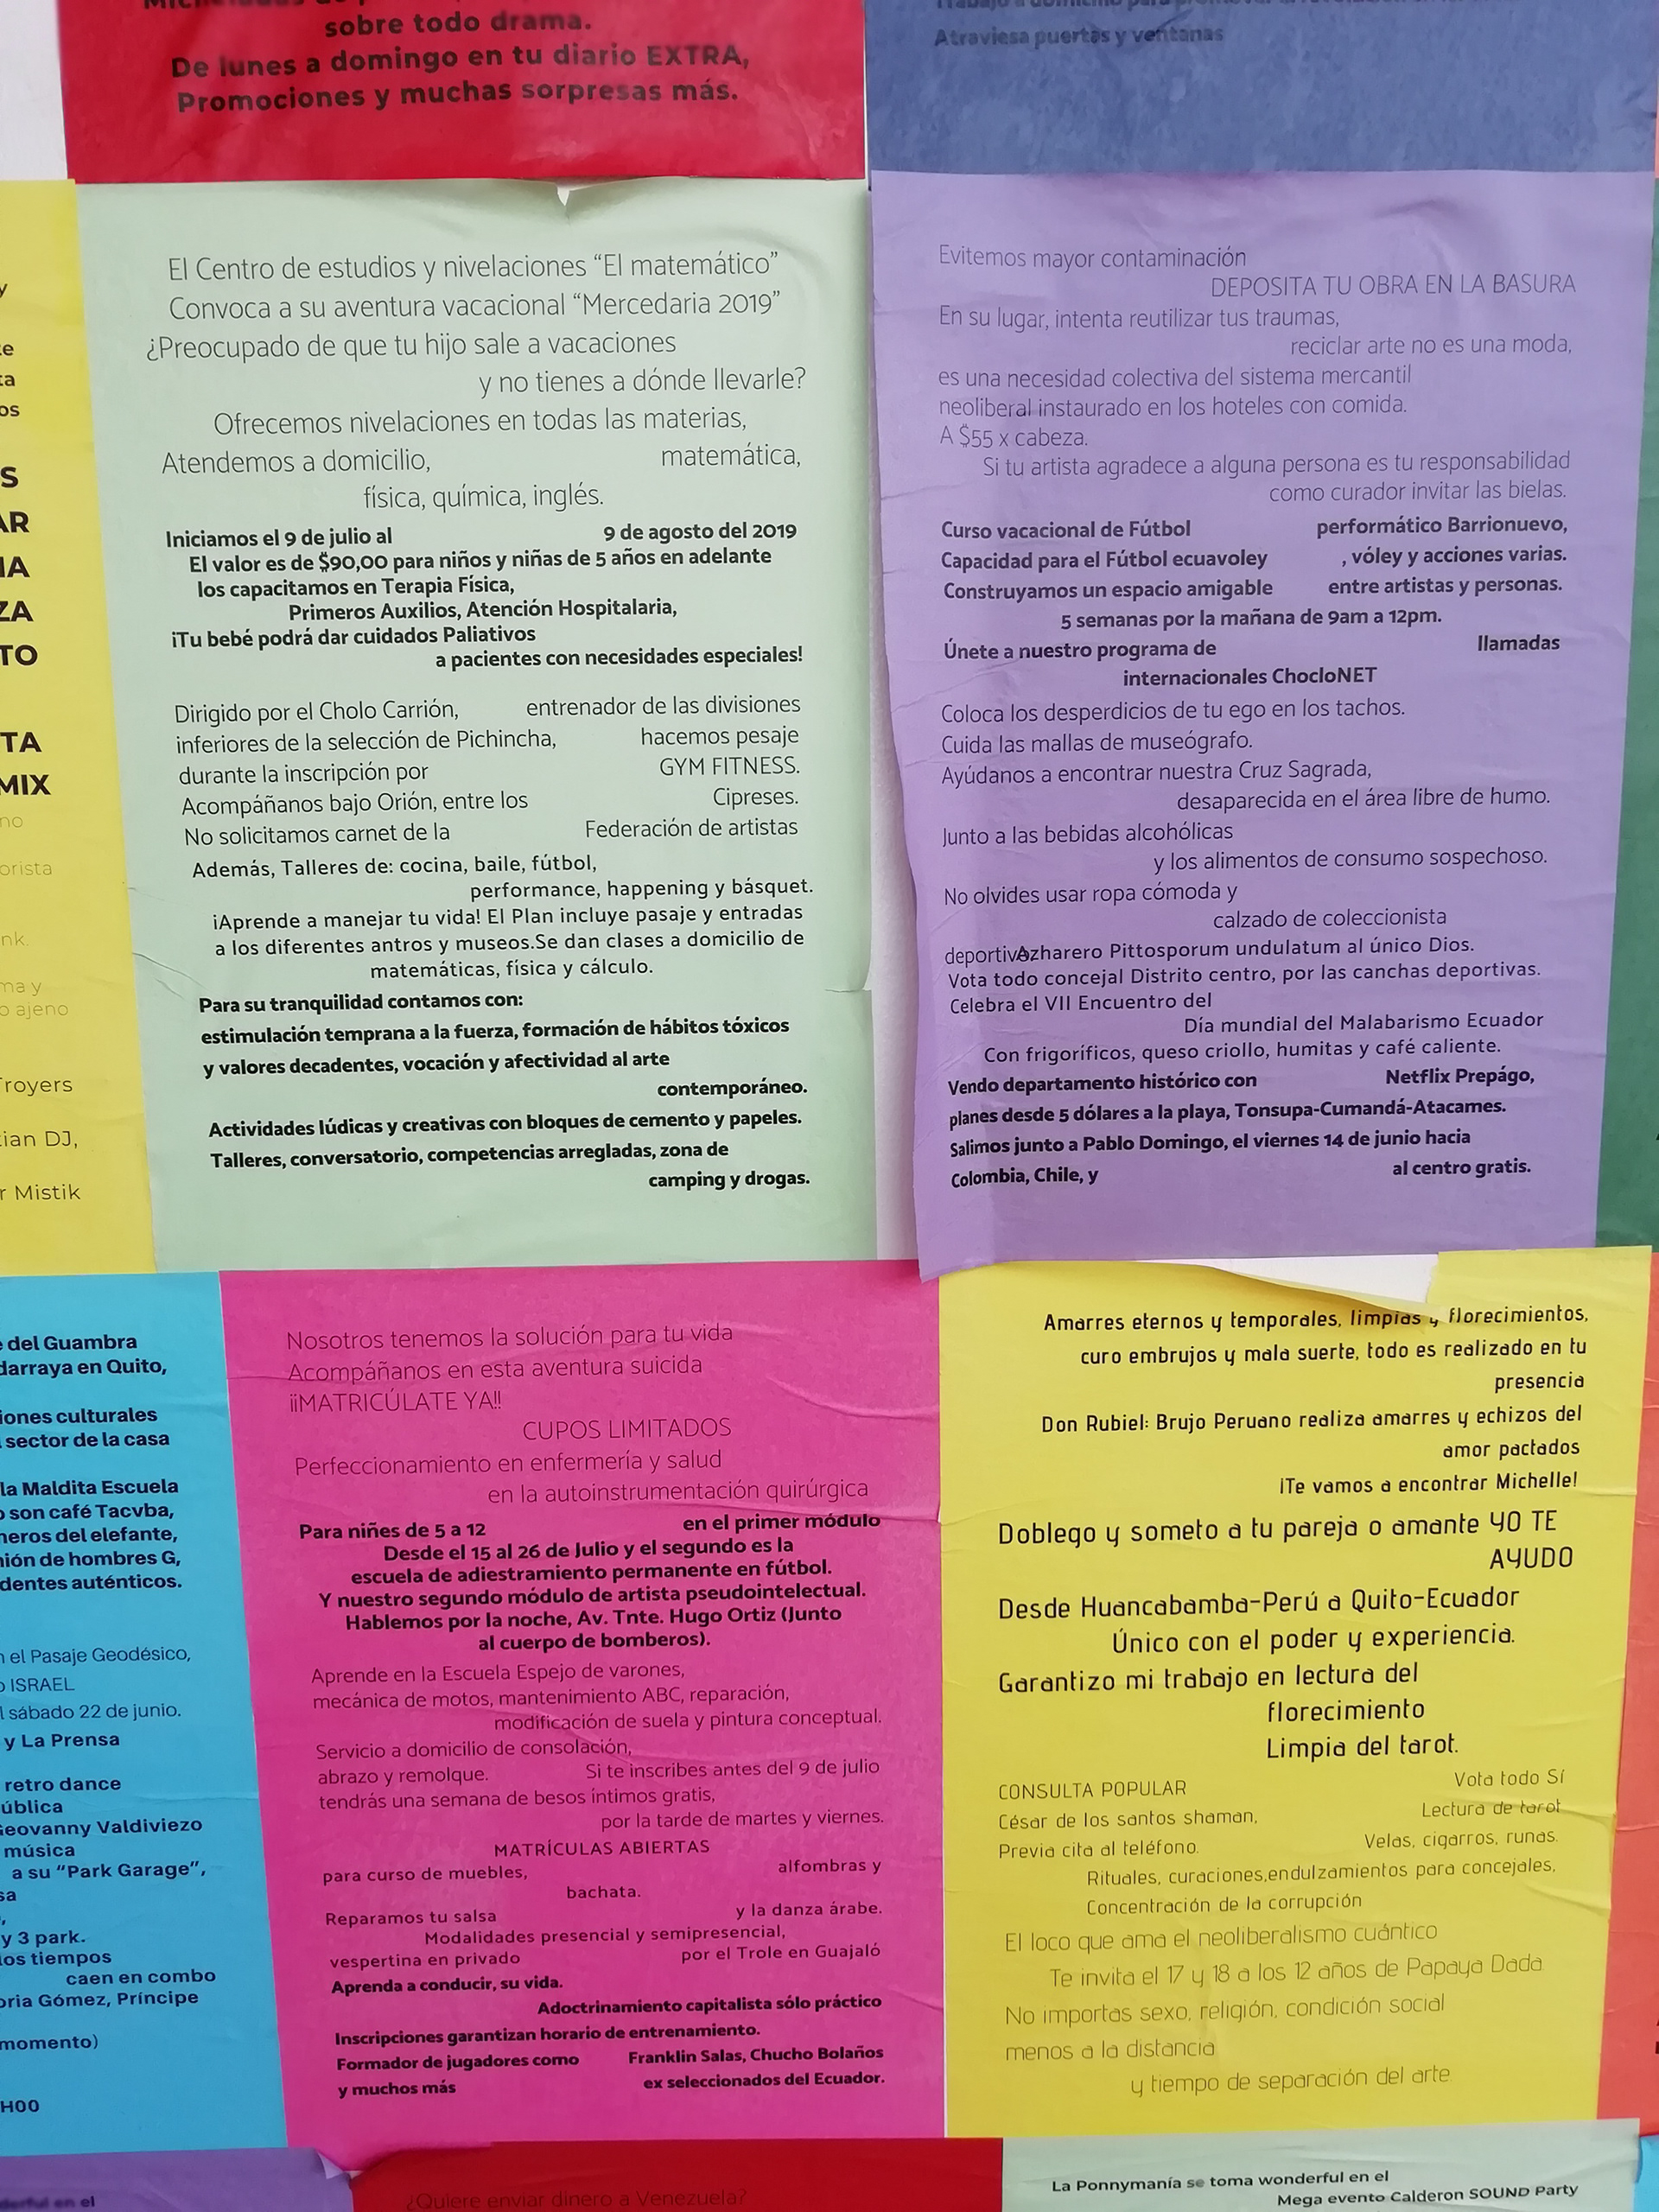 sobre todo drama.
De lunes a domingo en tu diario EXTRA,
Promociones y muchas sorpresas más.
Atraviesa puertas y ventanas
El Centro de estudios y nivelaciones “El matemático”
Convoca a su aventura vacacional “Mercedaria 2019”
¿Preocupado de que tu hijo sale a vacaciones
y no tienes a dónde llevarle?
Ofrecemos nivelaciones en todas las materias,
Atendemos a domicilio, matemática,
física, química, inglés.
Iniciamos el 9 de julio al 9 de agosto del 2019
El valor es de $90,00 para niños y niñas de 5 años en adelante
los capacitamos en Terapia Física,
Primeros Auxilios, Atención Hospitalaria,
¡Tu bebé podrá dar cuidados Paliativos
a pacientes con necesidades especiales!
Dirigido por el Cholo Carrión, entrenador de las divisiones
inferiores de la selección de Pichincha, hacemos pesaje
durante la inscripción por GYM FITNESS.
Acompáñanos bajo Orión, entre los Cipreses.
No solicitamos carnet de la Federación de artistas
Además, Talleres de: cocina, baile, fútbol,
performance, happening y básquet.
¡Aprende a manejar tu vida! El Plan incluye pasaje y entradas
a los diferentes antros y museos.Se dan clases a domicilio de
matemáticas, física y cálculo.
Para su tranquilidad contamos con:
estimulación temprana a la fuerza, formación de hábitos tóxicos
y valores decadentes, vocación y afectividad al arte
contemporáneo.
Actividades lúdicas y creativas con bloques de cemento y papeles.
Talleres, conversatorio, competencias arregladas, zona de
camping y drogas.
Evitemos mayor contaminación
DEPOSITA TU OBRA EN LA BASURA
En su lugar, intenta reutilizar tus traumas,
reciclar arte no es una moda,
es una necesidad colectiva del sistema mercantil
neoliberal instaurado en los hoteles con comida.
A $55 x cabeza.
Si tu artista agradece a alguna persona es tu responsabilidad
como curador invitar las bielas.
Curso vacacional de Fútbol performático Barrionuevo,
Capacidad para el Fútbol ecuavoley , vóley y acciones varias.
Construyamos un espacio amigable entre artistas y personas.
5 semanas por la mañana de 9am a 12pm.
Únete a nuestro programa de llamadas
internacionales ChocloNET
Coloca los desperdicios de tu ego en los tachos.
Cuida las mallas de museógrafo.
Ayúdanos a encontrar nuestra Cruz Sagrada,
desaparecida en el área libre de humo.
Junto a las bebidas alcohólicas
y los alimentos de consumo sospechoso.
No olvides usar ropa cómoda y
calzado de coleccionista
deportivo Azharero Pittosporum undulatum al único Dios.
Vota todo concejal Distrito centro, por las canchas deportivas.
Celebra el VII Encuentro del
Día mundial del Malabarismo Ecuador
Con frigoríficos, queso criollo, humitas y café caliente.
Vendo departamento histórico con Netflix Prepágo,
planes desde 5 dólares a la playa, Tonsupa-Cumandá-Atacames.
Salimos junto a Pablo Domingo, el viernes 14 de junio hacia
Colombia, Chile, y al centro gratis.
y
te
ta
os
S
AR
IA
ZA
TO
TA
MIX
no
orista
nk.
ma y
o ajeno
Troyers
tian DJ,
r Mistik
e del Guambra
darraya en Quito,
iones culturales
sector de la casa
la Maldita Escuela
o son café Tacvba,
neros del elefante,
nión de hombres G,
dentes auténticos.
n el Pasaje Geodésico,
o ISRAEL
l sábado 22 de junio.
y La Prensa
retro dance
ública
Geovanny Valdiviezo
música
a su “Park Garage”,
sa
,
y 3 park.
los tiempos
caen en combo
oria Gómez, Príncipe
momento)
H00
Nosotros tenemos la solución para tu vida
Acompáñanos en esta aventura suicida
¡¡MATRICÚLATE YA!!
CUPOS LIMITADOS
Perfeccionamiento en enfermería y salud
en la autoinstrumentación quirúrgica
Para niñes de 5 a 12 en el primer módulo
Desde el 15 al 26 de Julio y el segundo es la
escuela de adiestramiento permanente en fútbol.
Y nuestro segundo módulo de artista pseudointelectual.
Hablemos por la noche, Av. Tnte. Hugo Ortiz (Junto
al cuerpo de bomberos).
Aprende en la Escuela Espejo de varones,
mecánica de motos, mantenimiento ABC, reparación,
modificación de suela y pintura conceptual.
Servicio a domicilio de consolación,
abrazo y remolque. Si te inscribes antes del 9 de julio
tendrás una semana de besos íntimos gratis,
por la tarde de martes y viernes.
MATRÍCULAS ABIERTAS
para curso de muebles, alfombras y
bachata.
Reparamos tu salsa y la danza árabe.
Modalidades presencial y semipresencial,
vespertina en privado por el Trole en Guajaló
Aprenda a conducir, su vida.
Adoctrinamiento capitalista sólo práctico
Inscripciones garantizan horario de entrenamiento.
Formador de jugadores como Franklin Salas, Chucho Bolaños
y muchos más ex seleccionados del Ecuador.
Amarres eternos y temporales, limpias y florecimientos,
curo embrujos y mala suerte, todo es realizado en tu
presencia
Don Rubiel: Brujo Peruano realiza amarres y echizos del
amor pactados
¡Te vamos a encontrar Michelle!
Doblego y someto a tu pareja o amante YO TE
AYUDO
Desde Huancabamba-Perú a Quito-Ecuador
Único con el poder y experiencia.
Garantizo mi trabajo en lectura del
florecimiento
Limpia del tarot.
CONSULTA POPULAR Vota todo Sí
César de los santos shaman, Lectura de tarot
Previa cita al teléfono. Velas, cigarros, runas.
Rituales, curaciones,endulzamientos para concejales,
Concentración de la corrupción
El loco que ama el neoliberalismo cuántico
Te invita el 17 y 18 a los 12 años de Papaya Dada
No importas sexo, religión, condición social
menos a la distancia
y tiempo de separación del arte
en el
¿Quiere enviar dinero a Venezuela?
La Ponnymanía se toma wonderful en el
Mega evento Calderon SOUND Party